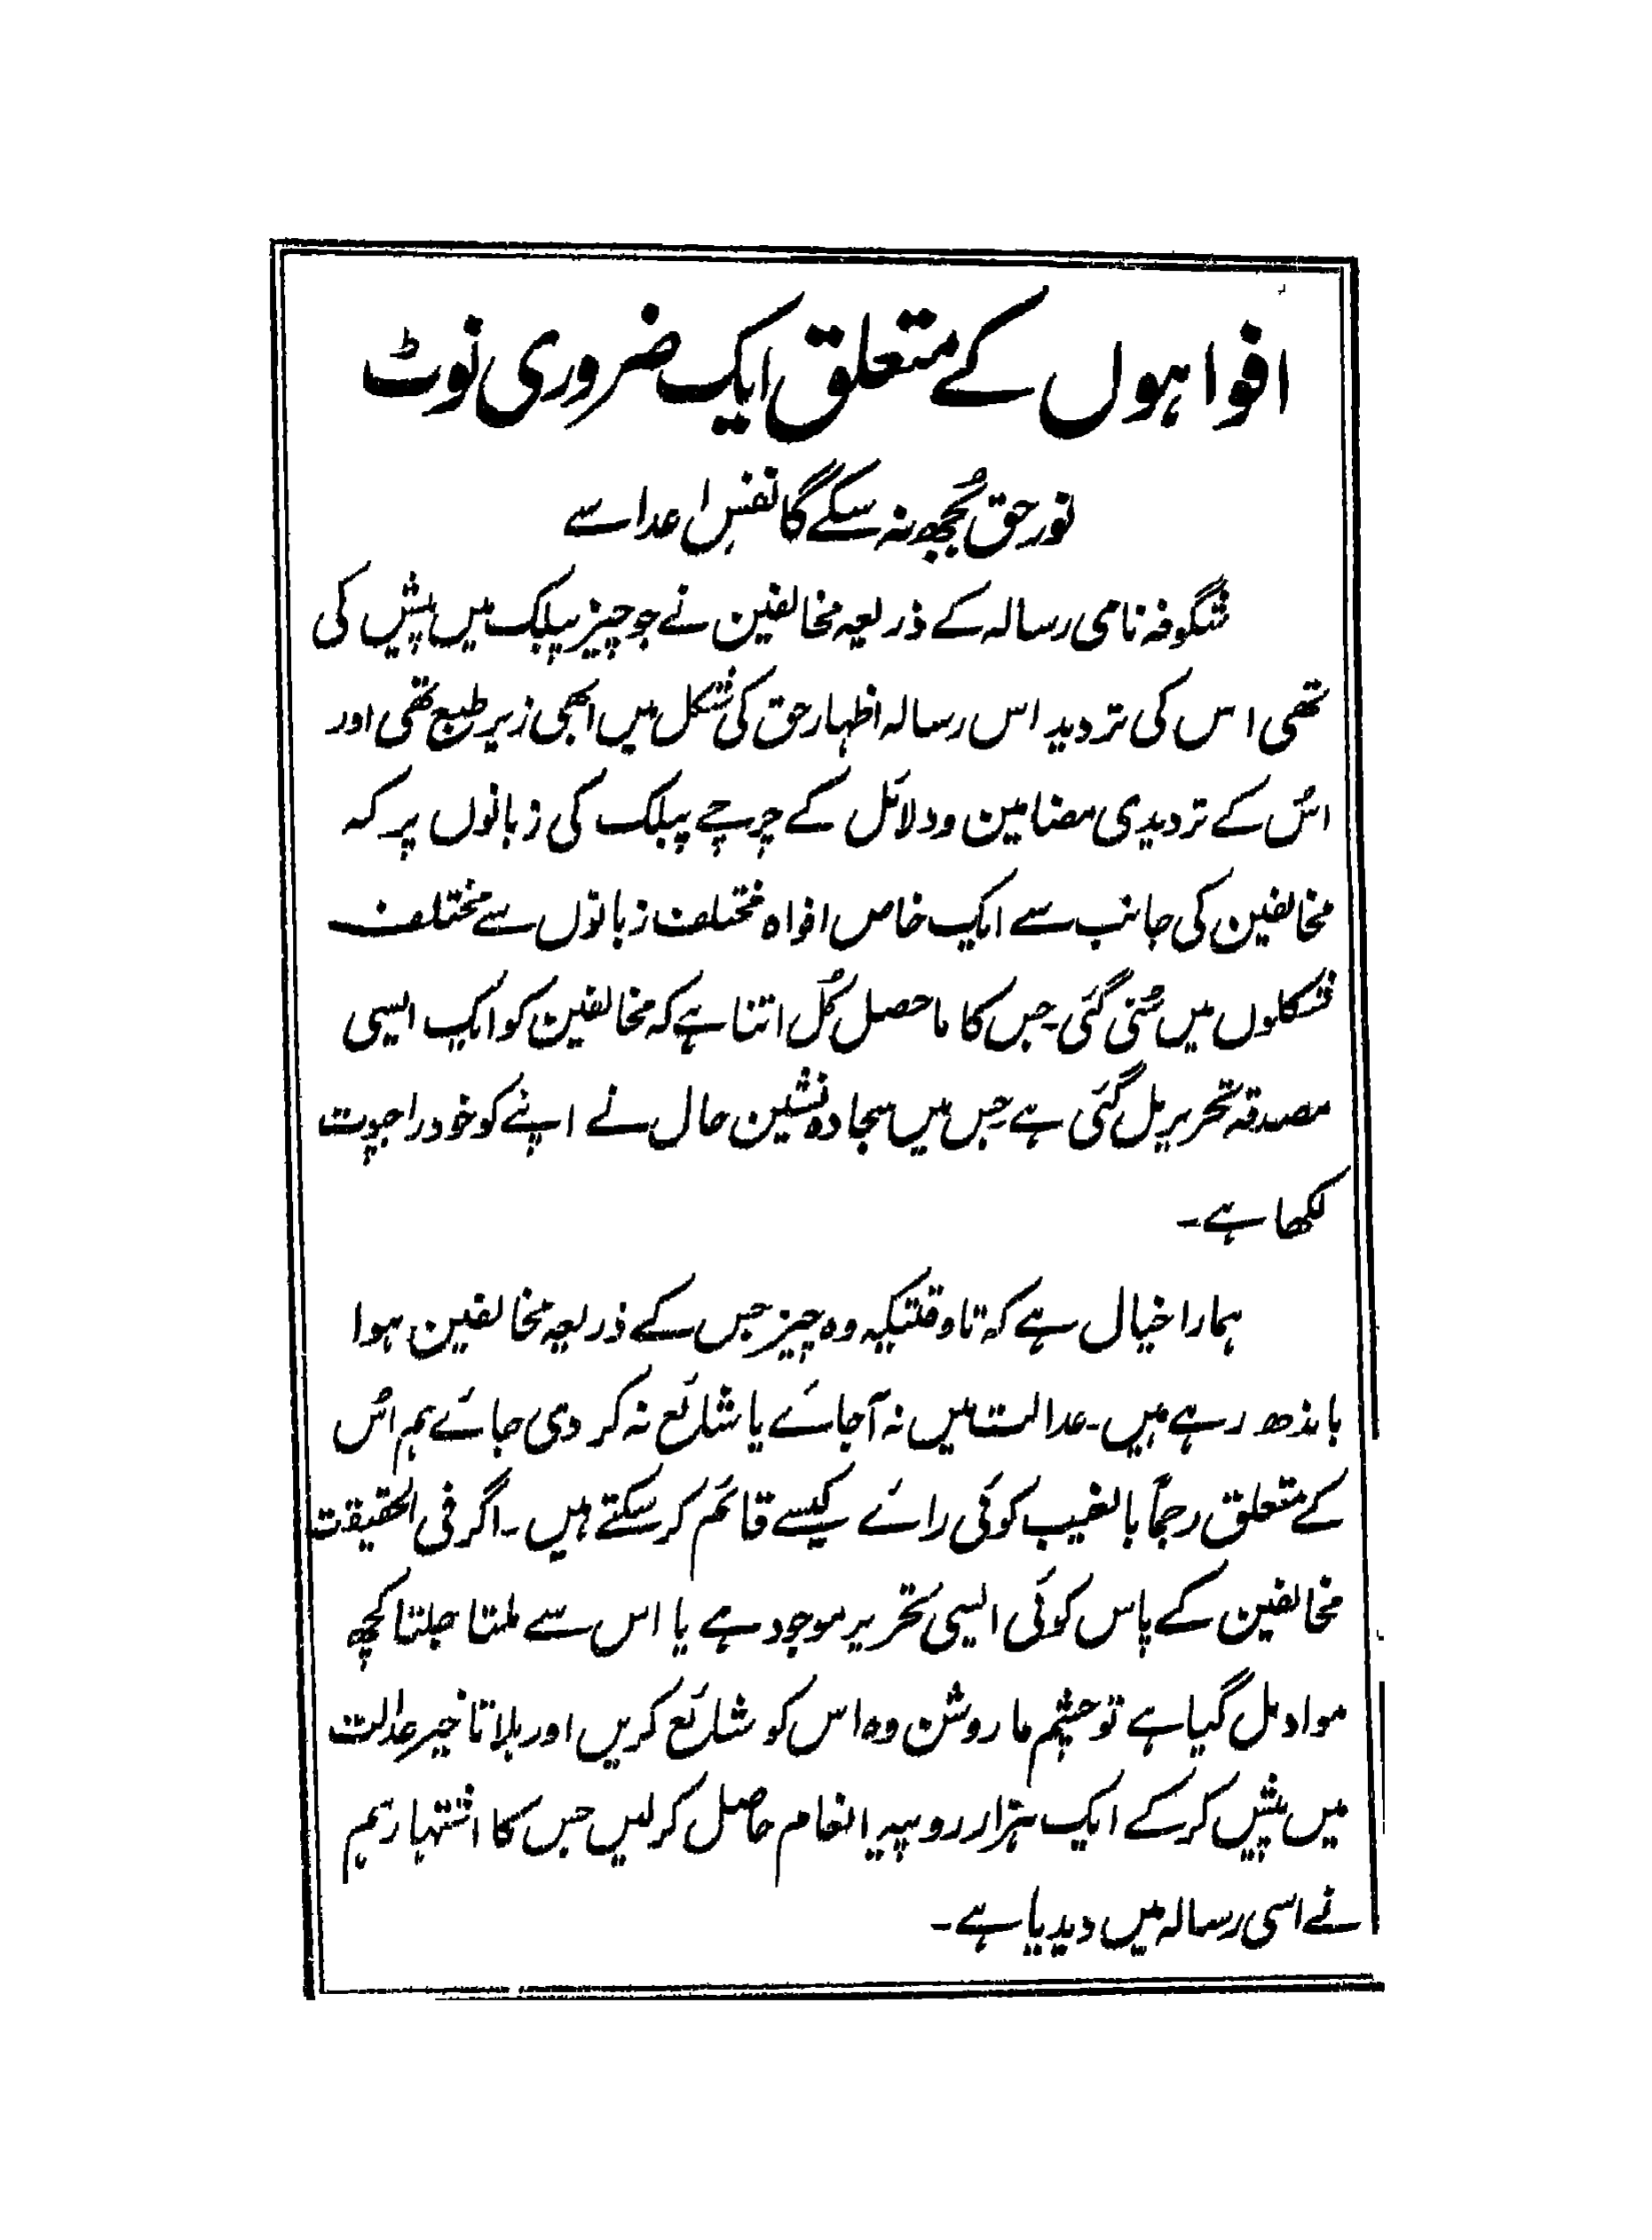 افواہوں کے متعلق ایک ضروری نوٹ
نور حق بُجھ نہ سکے گا نفسِ اعدا سے
شگوفہ نامی رسالہ کے ذریعہ مخالفین نے جو چیز پبلک میں پیش کی
تھی اس کی تردید اس رسالہ اظہار حق کی شکل میں ابھی زیر طبع تھی اور
اُس کے تردیدی مضامین و دلائل کے چرچے پبلک کی زبانوں پر کہ
مخالفین کی جانب سے ایک خاص افواہ مختلف زبانوں سے مختلف
شکلوں میں سُنی گئی۔ جس کا ماحصل کُل اتنا ہے کہ مخالفین کو ایک ایسی
مصدقہ تحریر مل گئی ہے جس میں سجادہ نشین حال نے اپنے کو خود راجپوت
لکھا ہے۔
ہمارا خیال ہے کہ تاوقتیکہ وہ چیز جس کے ذریعہ مخالفین ہوا
باندھ رہے ہیں۔ عدالت میں نہ آجائے یا شائع نہ کر دی جائے ہم اُس
کے متعلق رجماً بالغیب کوئی رائے کیسے قائم کر سکتے ہیں۔ اگر فی الحقیقت
مخالفین کے پاس کوئی ایسی تحریر موجود ہے یا اس سے ملتا جلتا کچھ
مواد مل گیا ہے تو چشم ما روشن وہ اس کو شائع کریں اور بلا تاخیر عدالت
میں پیش کر کے ایک ہزار روپیہ انعام حاصل کرلیں جس کا اشتہار ہم
نے اسی رسالہ میں دیدیا ہے۔